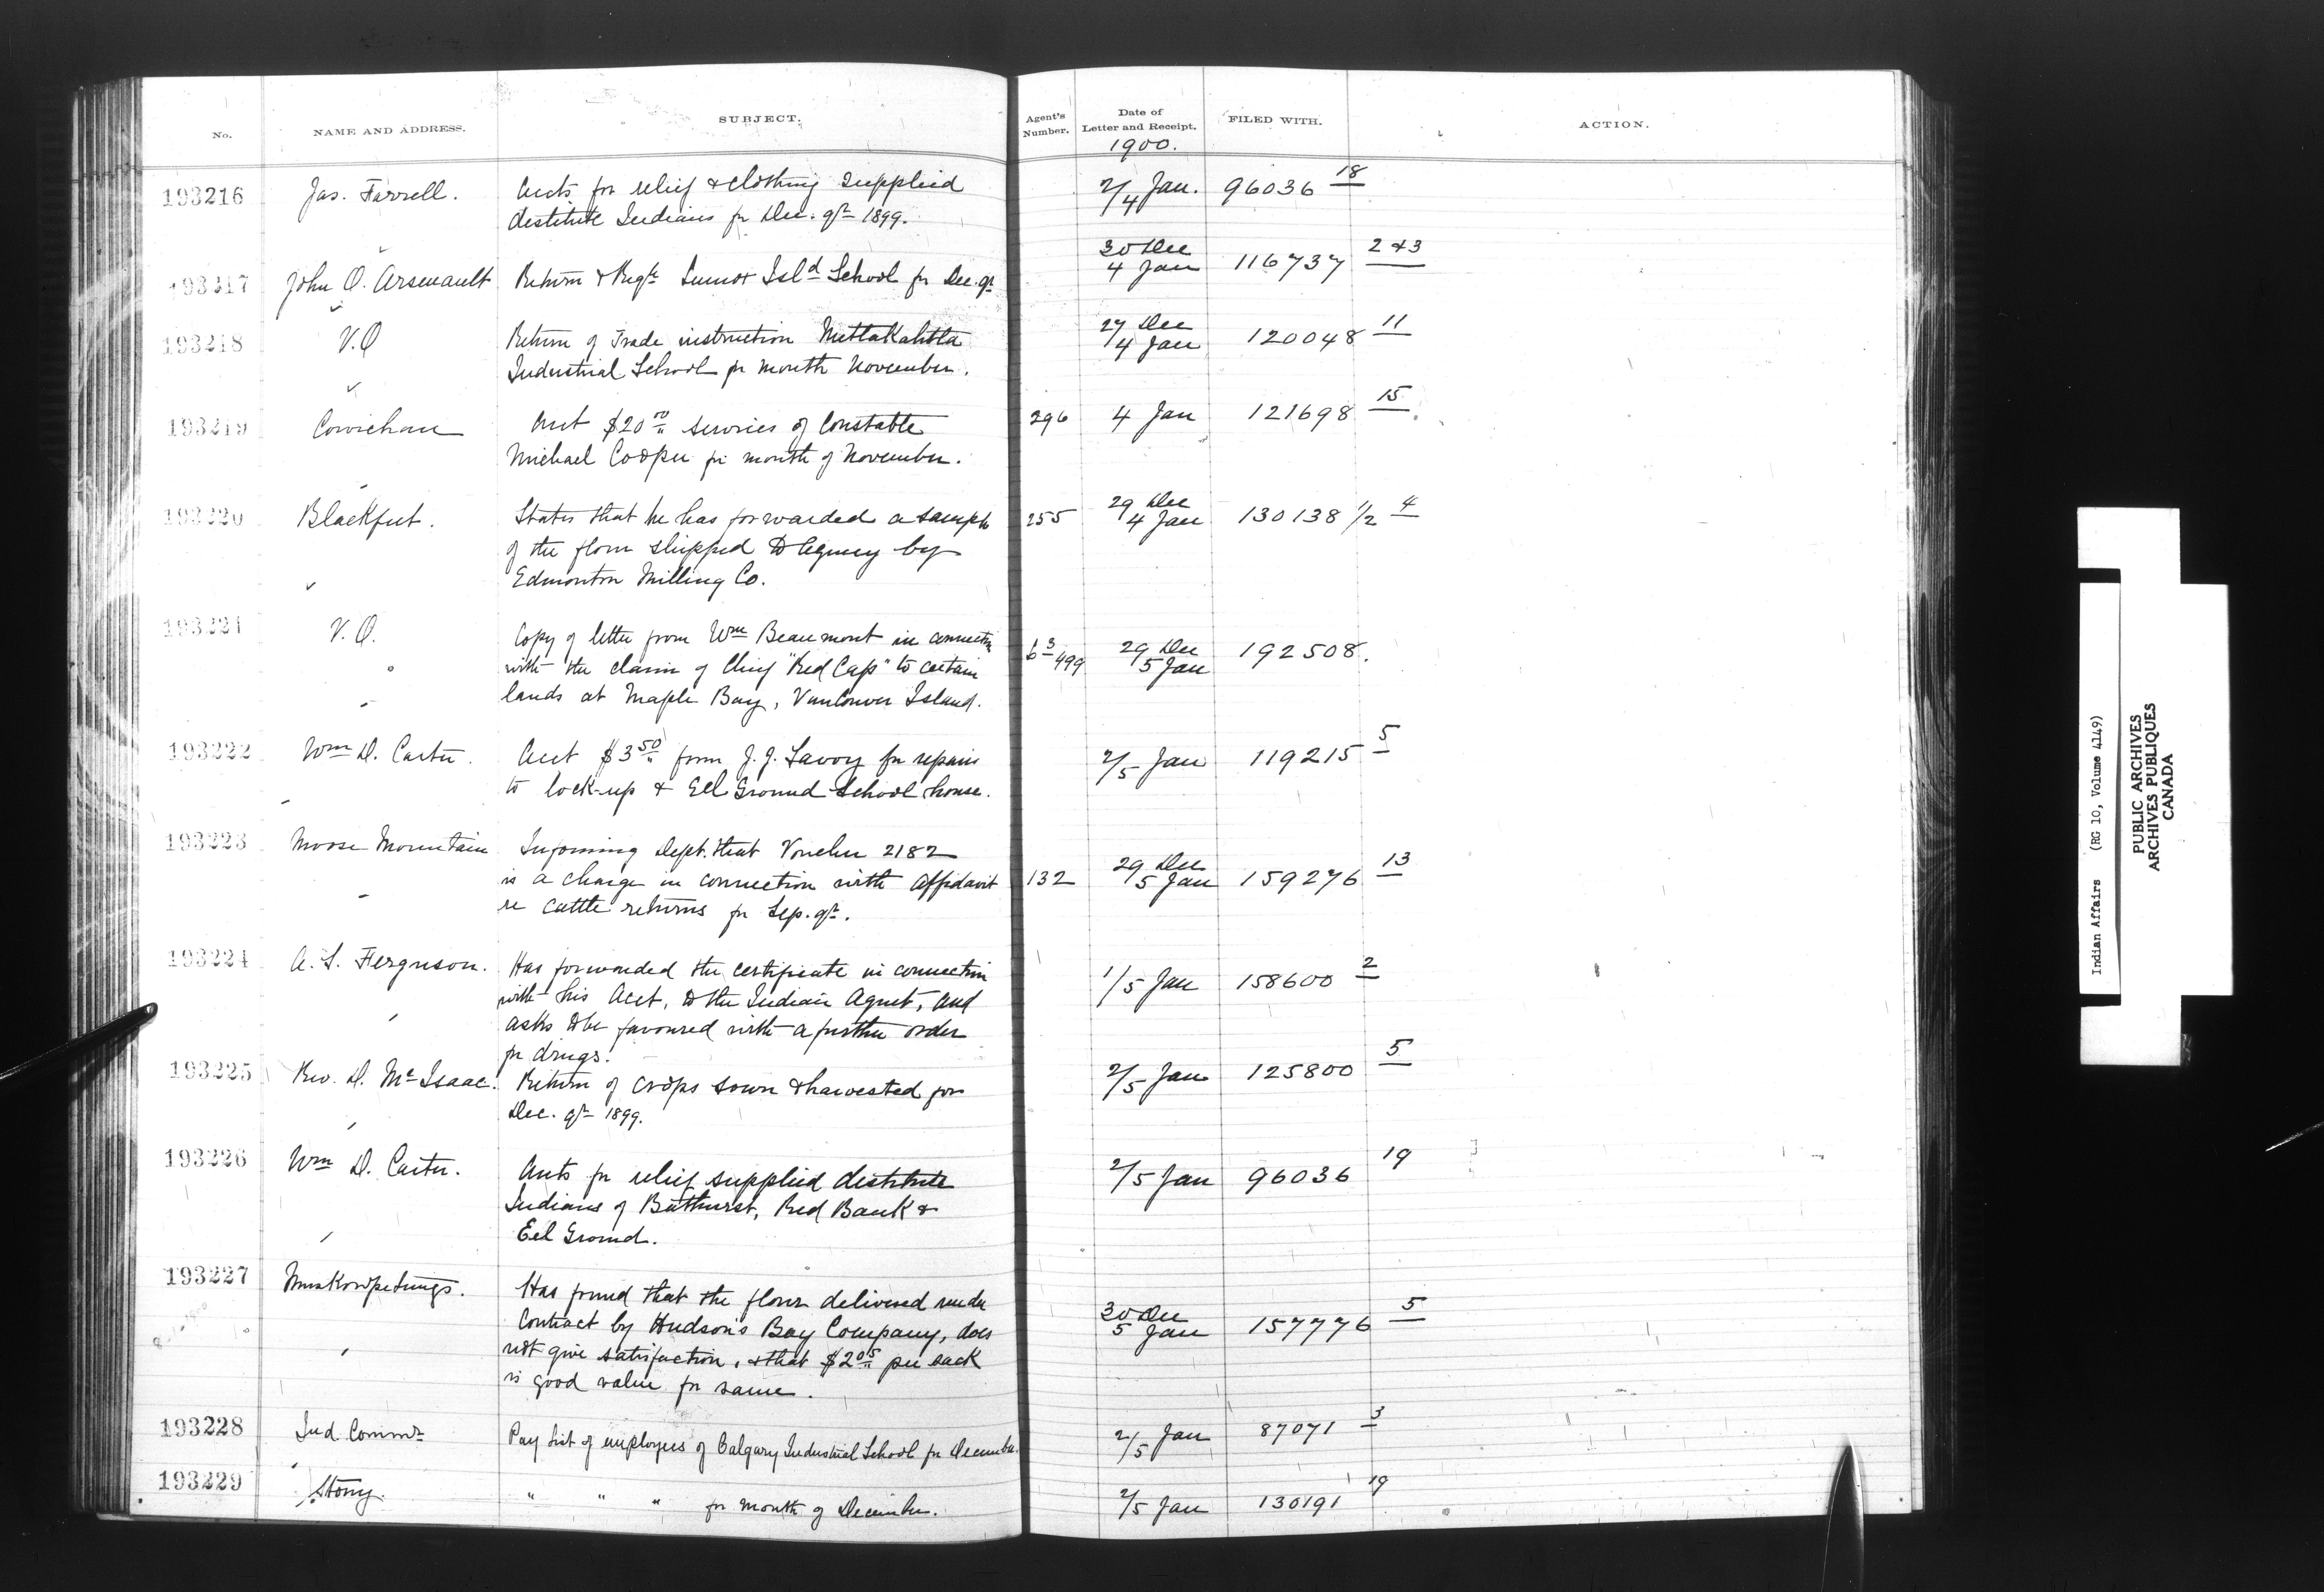 No.
NAME AND ADDRESS.
SUBJECT.
Agent's Number.
Date of Letter and Receipt.
FILED WITH.
ACTION.
1900.
193216 Jas. Farrell. Accts for relief & clothing supplied 2/4 Jan. 96036 18
destitute Indians fr Dec. qr 1899.
193217 John O. Arsenault Return & Regr Lennox Isld School fr Dec. qr 30 Dec 4 Jan 116737 2 & 3
193218 V.O. Return of Trade instruction Metlakahtla 27 Dec 4 Jan 120048 11
Industrial School fr month November.
193219 Cowichan Acct $20 00 services of Constable 296 4 Jan 121698 15
Michael Cooper fr month of November.
193220 Blackfeet. States that he has forwarded a sample 255 29 Dec 4 Jan 130138 1/2 4
of the flour shipped to Agency by
Edmonton Milling Co.
193221 V.O. Copy of letter from Wm Beaumont in connectn 63/499 29 Dec 5 Jan 192508.
with the claim of Chief "Red Cap" to certain
lands at Maple Bay, Vancouver Island.
193222 Wm D. Carter. Acct $3 50 from J. J. Savoy for repairs 2/5 Jan 119215 5
to lock-up & Eel Ground School house.
193223 Moose Mountain Informing Dept. that Voucher 2182 132 29 Dec 5 Jan 159276 13
is a charge in connection with affidavit
re cattle returns fr Sep. qr.
193224 A. S. Ferguson. Has forwarded the certificate in connection 1/5 Jan 158600 2
with his Acct, to the Indian Agent, and
asks to be favoured with a further order
fr drugs.
193225 Rev. D. McIsaac. Return of crops sown & harvested for 2/5 Jan 125800 5
Dec. qr 1899.
193226 Wm D. Carter. Accts fr relief supplied destitute 2/5 Jan 96036 19
Indians of Bathurst, Red Bank &
Eel Ground.
193227 Muskowpetungs. Has found that the flour delivered under 30 Dec 5 Jan 157776 5
contract by Hudson's Bay Company, does
not give satisfaction, & that $2 05 per sack
is good value for same.
193228 Ind Commr Pay list of employees of Calgary Industrial School fr December. 2/5 Jan 87071 3
193229 Stony. " " " fr month of December. 2/5 Jan 130191 19
Indian Affairs (RG 10, Volume 4149)
PUBLIC ARCHIVES
ARCHIVES PUBLIQUES
CANADA